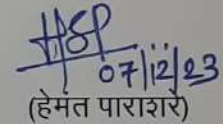 07/12/23
(हेमंत पाराशरे)